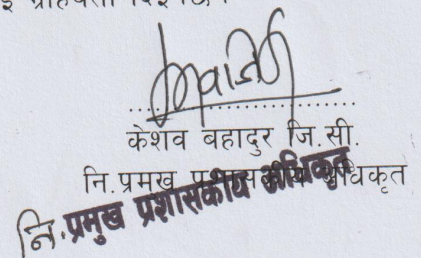 केशव बहादुर जि.सी.
नि.प्रमुख प्रशासकीय अधिकृत
नि.प्रमुख प्रशासकीय अधिकृत